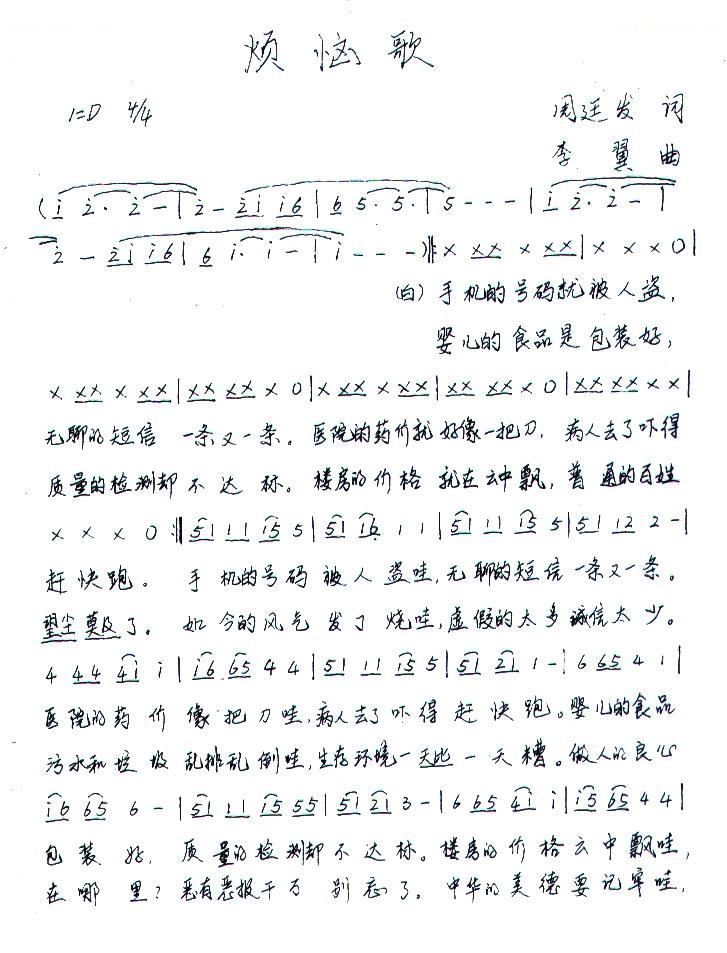 烦恼歌
1=D 4/4
周廷发 词
李翼 曲
(i 2· 2 — | 2 — 2i i6 | 6 5· 5· | 5 - - - | i 2· 2 — |
2 — 2i i6 | 6 i· i — | i - - -) ‖: x xx x xx | x x x 0 |
(白) 手机的号码就被人盗,
婴儿的食品是包装好,
x xx x xx | xx xx x 0 | x xx x xx | xx xx x 0 | xx xx x x |
无聊的短信 一条又一条。医院的药价就好像一把刀, 病人去了吓得
质量的检测却不达标。楼房的价格就在云中飘,普通的百姓
x x x 0 :‖ 51 11 i5 5 | 51 i6 1 1 | 51 11 i5 5 | 51 12 2 - |
赶快跑。 手机的号码被人盗哇,无聊的短信一条又一条。
望尘莫及了。 如今的风气发了烧哇,虚假的太多诚信太少。
4 44 4i i | i6 65 4 4 | 51 11 i5 5 | 51 21 1 - | 6 65 4 1 |
医院的药价像把刀哇,病人去了吓得赶快跑。婴儿的食品
污水和垃圾乱排乱倒哇,生存环境一天比一天糟。做人的良心
i6 65 6 - | 51 11 i5 55 | 51 21 3 - | 6 65 4i i | i5 65 4 4 |
包装好, 质量的检测却不达标。楼房的价格云中飘哇,
在哪里?恶有恶报千万别忘了。中华的美德要记牢哇,